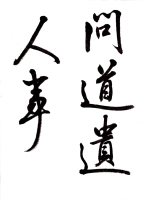 問道遺
人事